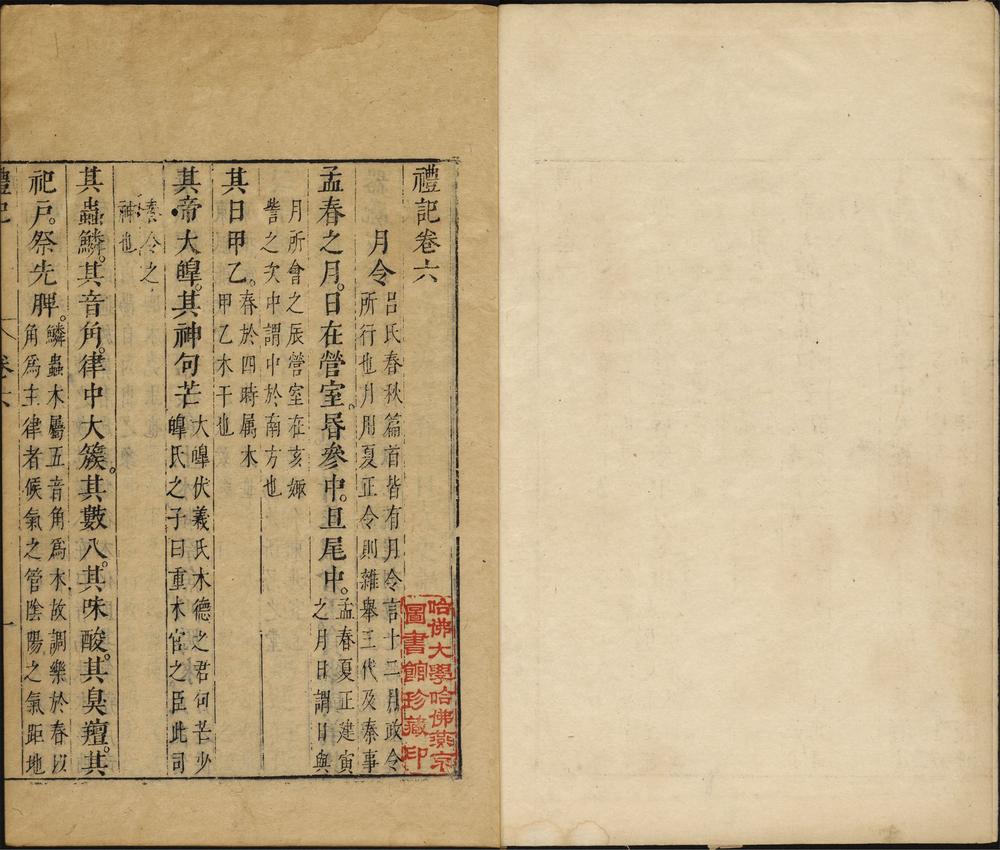 禮記卷六
月令
呂氏春秋篇首皆有月令言十二月政令
所行也月用夏正令則雜舉三代及秦事
孟春之月。日在營室。昏參中。旦尾中。
孟春夏正建寅
之月日謂日與
月所會之辰營室在亥娵
訾之次中謂中於南方也
其日甲乙。
春於四時属木
甲乙木干也
其帝大皥。其神句芒
大皥伏羲氏木德之君句芒少
皥氏之子曰重木官之臣此司
春令之
神也
其蟲鱗。其音角。律中大簇。其數八。其味酸。其臭羶。其
祀戸。祭先脾。
鱗蟲木屬五音角爲木故調樂於春以
角爲主律者候氣之管陰陽之氣距地
禮記
卷六
一
哈佛大學哈佛燕京
圖書館珍藏印